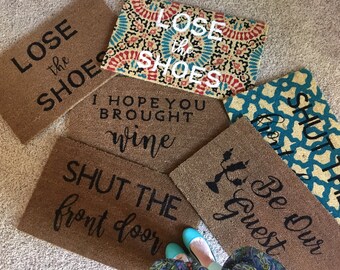 LOSE
the
SHOES
LOSE
the
SHOES
I HOPE YOU
BROUGHT
wine
SHUT THE
front door
Be Our
Guest
SHUT THE
front door